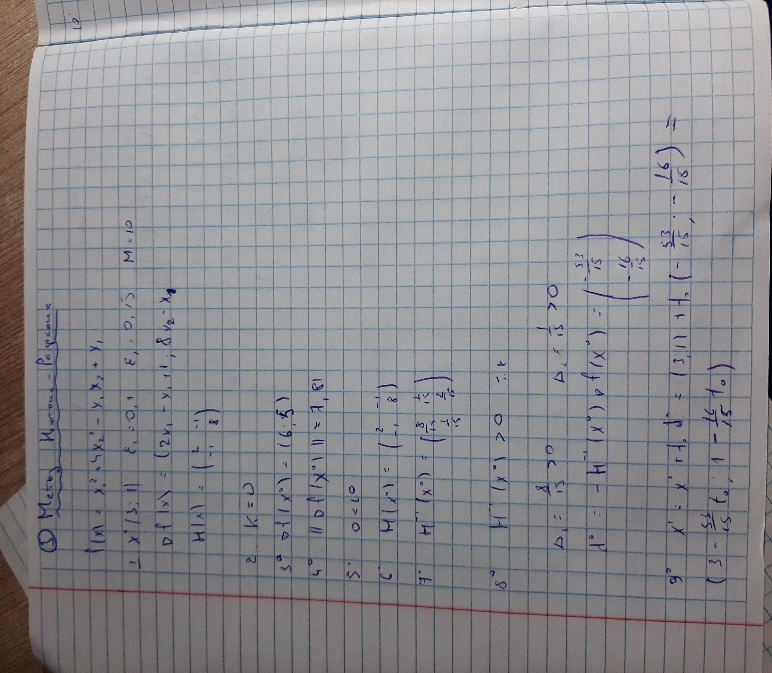 ③ Метод Ньютона-Рафсона
f(x) = x₁² + 4x₂² - x₁x₂ + x₁
1 x⁰(3,1) ε₁ = 0,1 ε₂ = 0,15 M = 10
∇f(x) = (2x₁ - x₂ + 1; 8x₂ - x₁)
H(x) = (2 -1 / -1 8)
2 K = 0
3⁰ ∇f(x⁰) = (6; 5)
4⁰ ||∇f(x⁰)|| = 7,81
5⁰ 0 < 10
6⁰ H(x⁰) = (2 -1 / -1 8)
7⁰ H⁻¹(x⁰) = (8/15 1/15 / 1/15 2/15)
8⁰ H⁻¹(x⁰) > 0
Δ₁ = 8/15 > 0 Δ₂ = 1/15 > 0
d⁰ = -H⁻¹(x⁰)∇f(x⁰) = (-53/15 / -16/15)
9⁰ x¹ = x⁰ + t₀d⁰ = (3,1) + t₀(-53/15; -16/15) =
(3 - 53/15 t₀; 1 - 16/15 t₀)